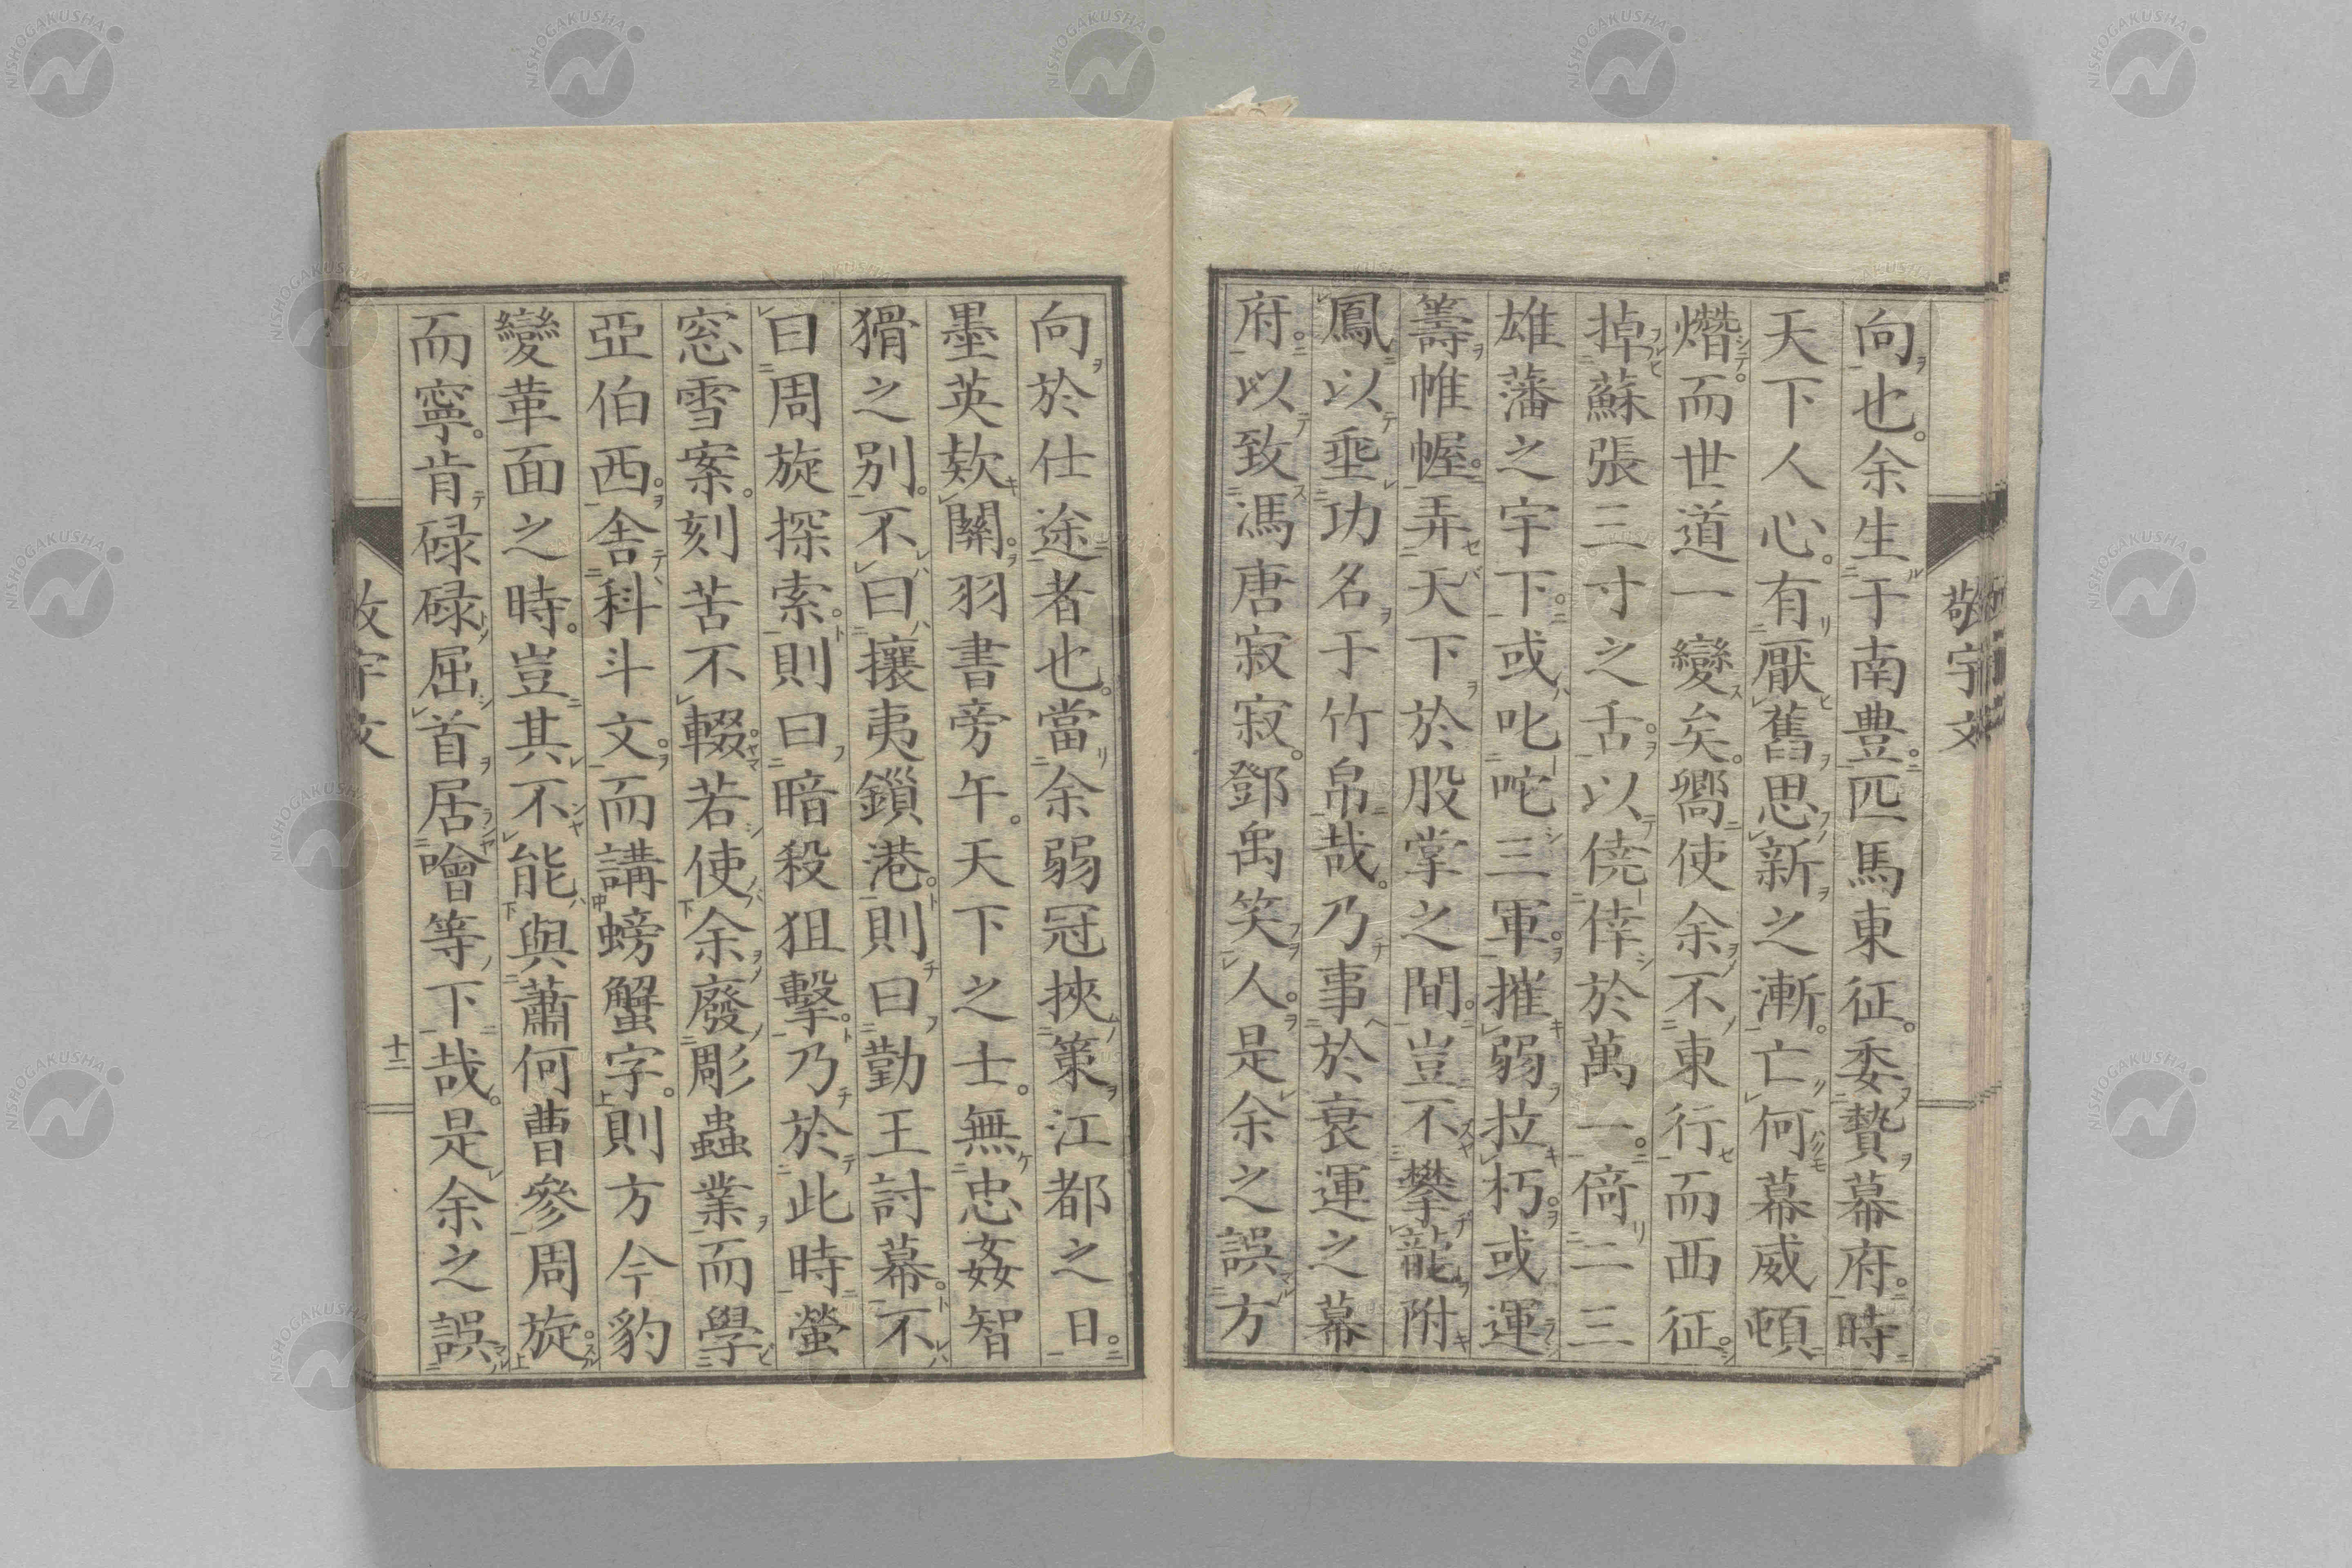 敬宇文
向也。余生于南豊。匹馬東征。委贄幕府。時
天下人心。有厭舊思新之漸。亡何幕威頓
熸。而世道一變矣。嚮使余不東行而西征。
掉蘇張三寸之舌。以僥倖於萬一。倚二三
雄藩之宇下。或叱咤三軍。摧弱拉朽。或運
籌帷幄。弄天下於股掌之間。豈不攀龍附
鳳以垂功名于竹帛哉。乃事於衰運之幕
府。以致馮唐寂寂。鄧禹笑人。是余之誤方
向於仕途者也。當余弱冠挾策江都之日。
墨英欵關。羽書旁午。天下之士。無忠姦智
猾之別。不曰攘夷鎖港。則曰勤王討幕。不
曰周旋探索。則曰暗殺狙擊。乃於此時螢
窓雪案。刻苦不輟。若使余廢彫蟲業而學
亞伯西。舎科斗文。而講螃蟹字。則方今豹
變革面之時。豈其不能與蕭何曹參周旋。
而寧。肯碌碌屈首居噲等下哉。是余之誤
敬宇文
十二
NISHOGAKUSHA